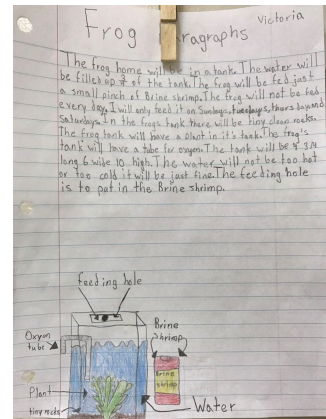 Victoria
Frog aragraphs
The frog home will be in a tank. The water will
be filled up of the tank. The frog will be fed just
a small pinch of Brine shrimp. The frog will not be fed
every day. I will only feed it on Sundays, tuesdays, thursdays and
saturdays. In the frogs tank there will be tiny clean rocks.
The frog tank will have a plant in it's tank. The frog's
tank will have a tube for oxyen. The tank will be
long 6 wide 10 high. The water will not be too hot
or too cold it will be just fine. The feeding hole
is to put in the Brine shrimp.
feeding hole
Oxyen
tube
Brine
shrimp
Brine
shrimp
Plant
tiny rocks
Water